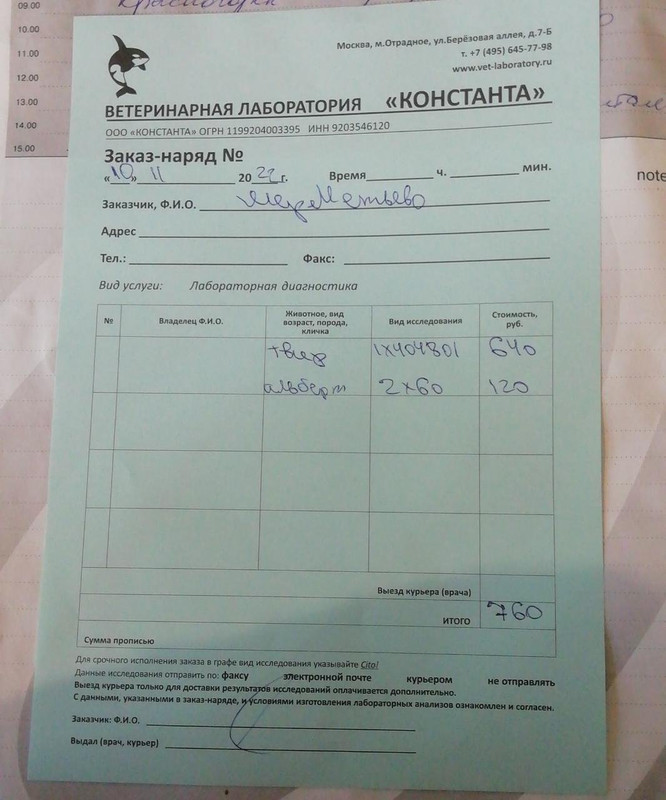 09.00
10.00
11.00
12.00
13.00
14.00
15.00
note
Москва, м.Отрадное, ул.Берёзовая аллея, д.7-Б
т. +7 (495) 645-77-98
www.vet-laboratory.ru
ВЕТЕРИНАРНАЯ ЛАБОРАТОРИЯ «КОНСТАНТА»
ООО «КОНСТАНТА» ОГРН 1199204003395 ИНН 9203546120
Заказ-наряд №
«10» 11 2022 г. Время ч. мин.
Заказчик, Ф.И.О.
Адрес
Тел.: Факс:
Вид услуги: Лабораторная диагностика
№ Владелец Ф.И.О. Животное, вид возраст, порода, кличка Вид исследования Стоимость, руб.
1х404801 640
альберт 2х60 120
Выезд курьера (врача)
ИТОГО 760
Сумма прописью
Для срочного исполнения заказа в графе вид исследования указывайте Cito!
Данные исследования отправить по: факсу электронной почте курьером не отправлять
Выезд курьера только для доставки результатов исследований оплачивается дополнительно.
С данными, указанными в заказ-наряде, и условиями изготовления лабораторных анализов ознакомлен и согласен.
Заказчик: Ф.И.О.
Выдал (врач, курьер)